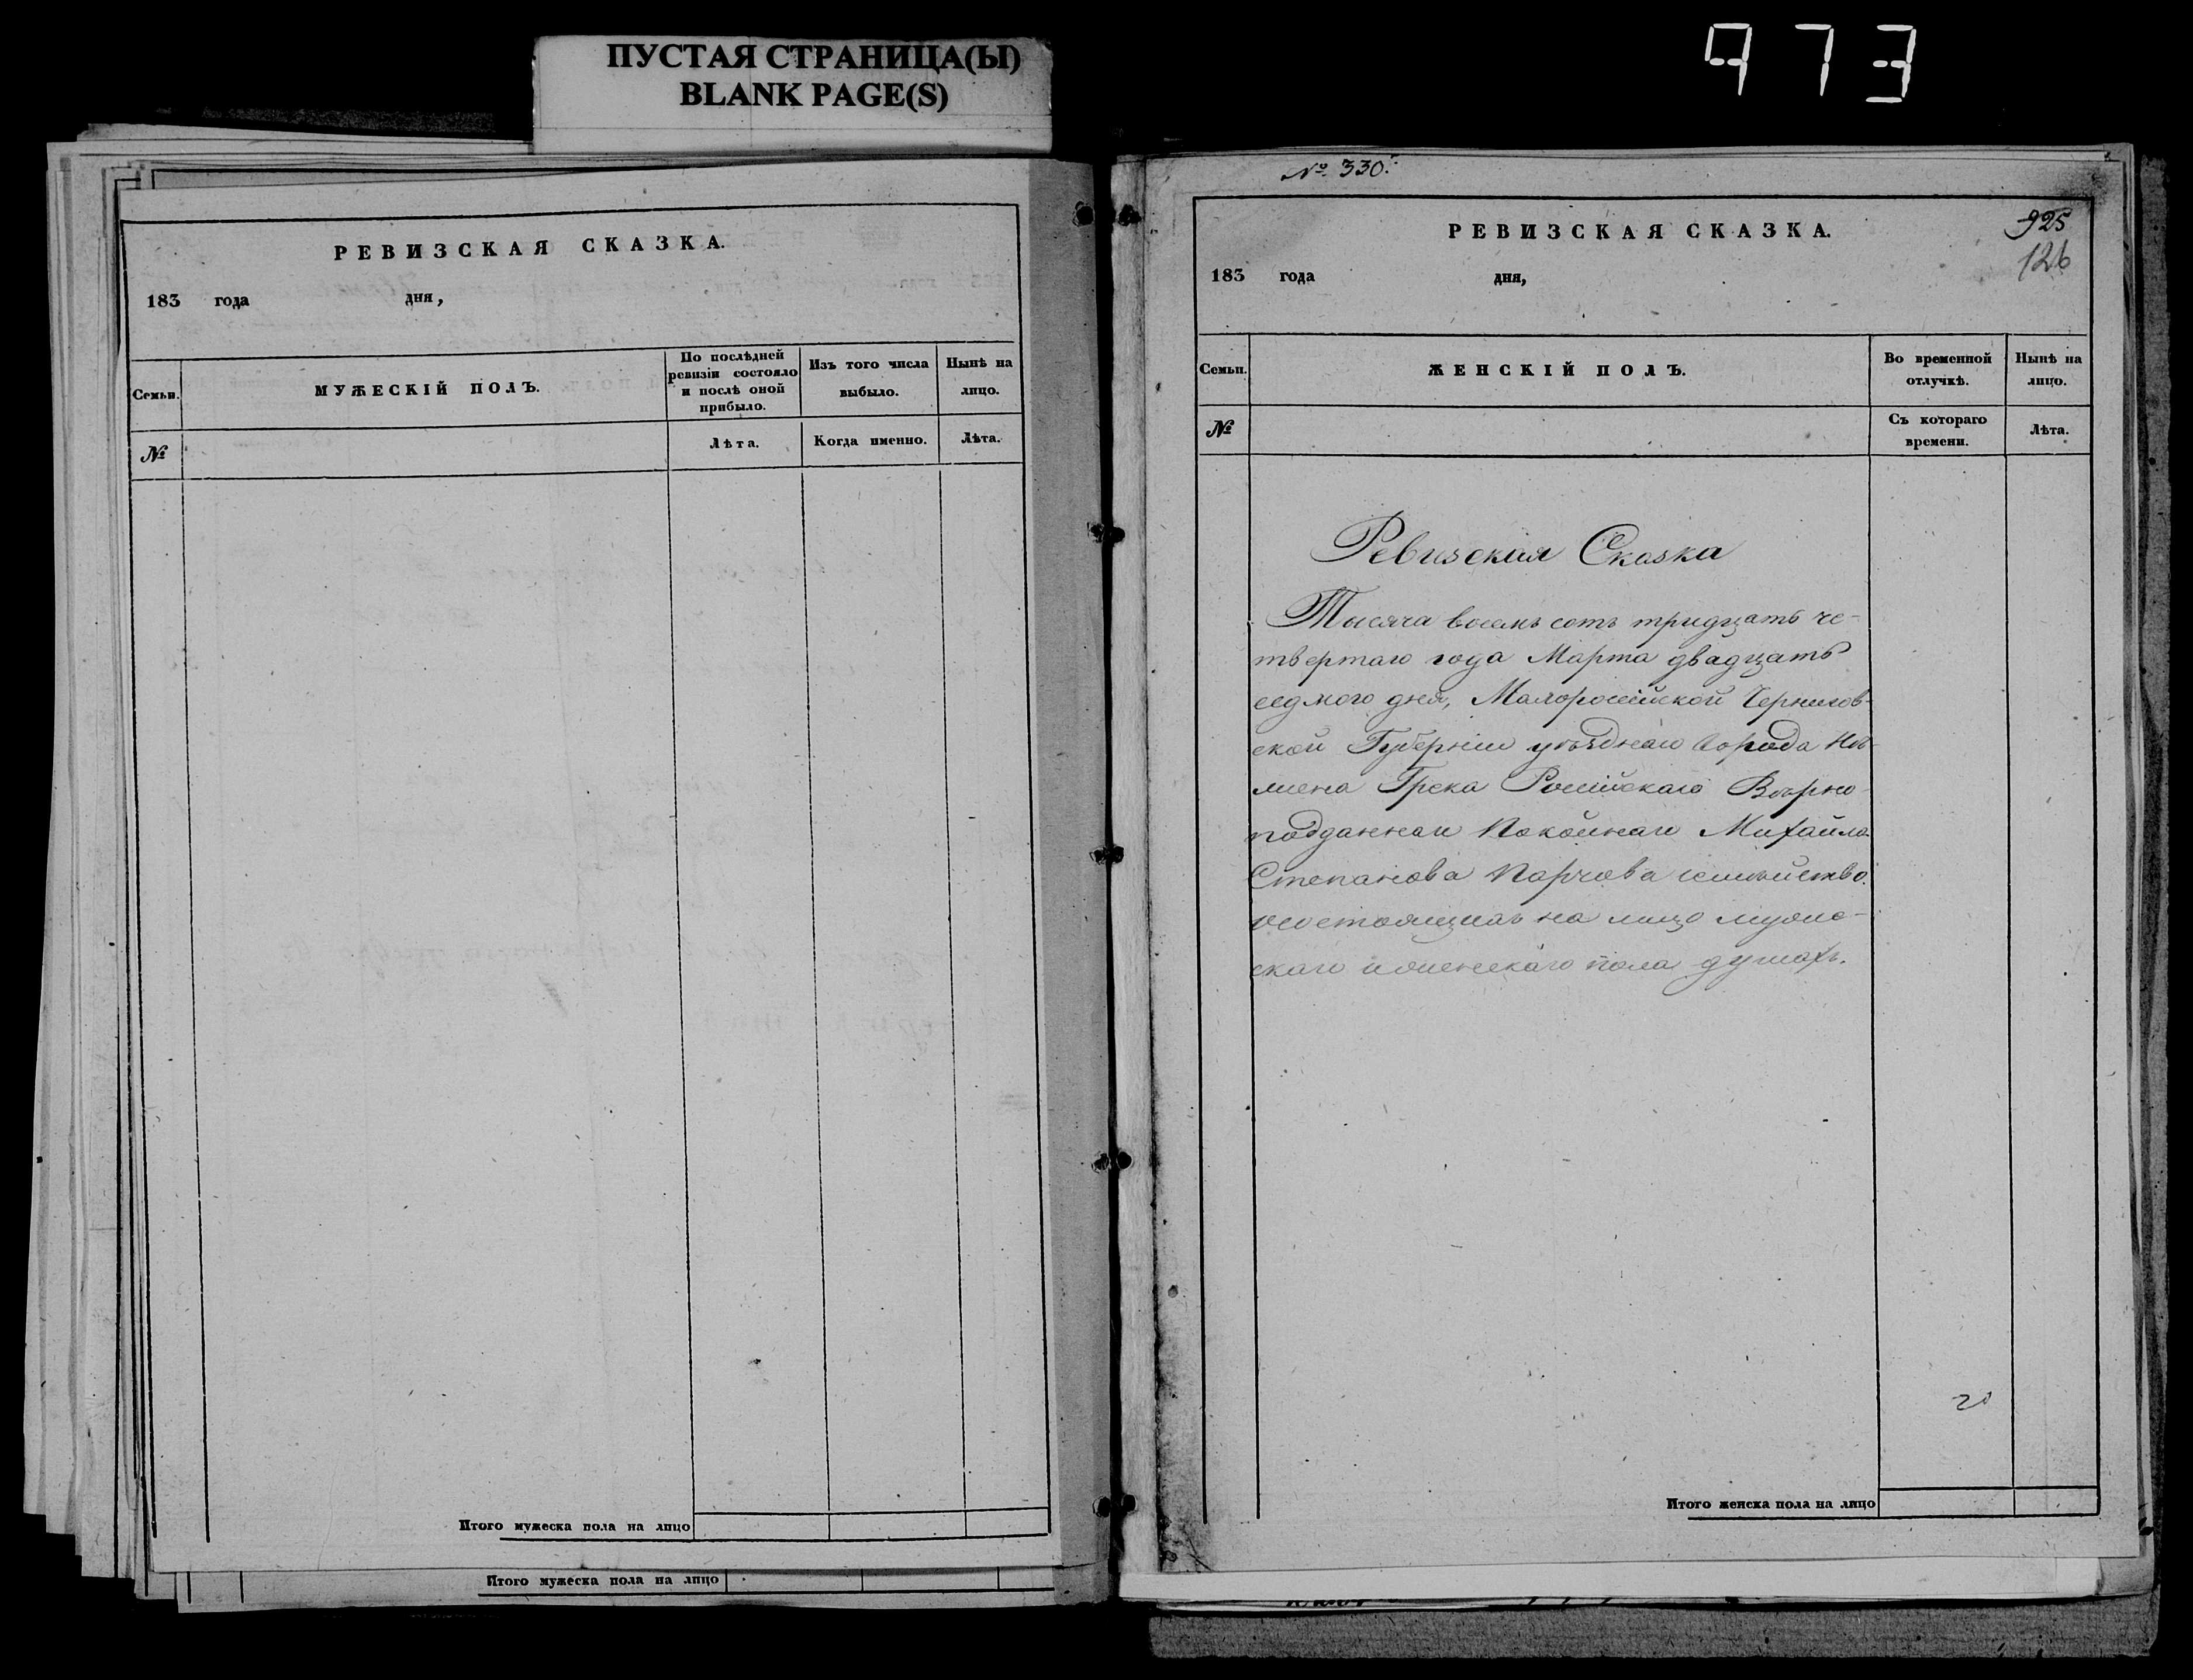 ПУСТАЯ СТРАНИЦА(Ы)
BLANK PAGE(S)
973
РЕВИЗСКАЯ СКАЗКА.
183 года дня,
Семьи.
МУЖЕСКІЙ ПОЛЪ.
По послѣдней ревизіи состояло и послѣ оной прибыло.
Изъ того числа выбыло.
Нынѣ на лицо.
№
Лѣта.
Когда именно.
Лѣта.
Итого мужеска пола на лицо
Итого мужеска пола на лицо
№ 330.
РЕВИЗСКАЯ СКАЗКА.
925
126
183 года дня,
Семьи.
ЖЕНСКІЙ ПОЛЪ.
Во временной отлучкѣ.
Нынѣ на лицо.
№
Съ котораго времени.
Лѣта.
Ревизская Сказка
Тысяча восемь сотъ тридцать че-
твертаго года Марта двадцать
седмого дня, Малоросійской Чернигов-
ской Губерніи уѣзднаго города Нѣ-
жена Грека Російскаго Вѣрно-
подданнаго Покойнаго Михайла
Степанова семѣйство
состоящимъ на лицо муже-
скаго и женскаго пола душахъ.
Итого женска пола на лицо